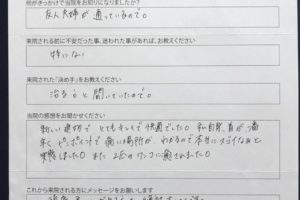 何がきっかけで当院をお知りになりましたか?
友人夫婦が通っているので。
来院される前に不安だった事、迷われた事があれば、お教えください
特にない
来院された「決め手」をお教えください
治ると聞いていたので。
当院の感想をお聞かせください
新しい建物で とてもキレイで快適でした。私自身、肩が
ピンポイントで 痛い場所が わかるので本当にスゴイなぁと
実感しました。また 2匹のワンコに癒されました。
これから来院される方にメッセージをお願いします